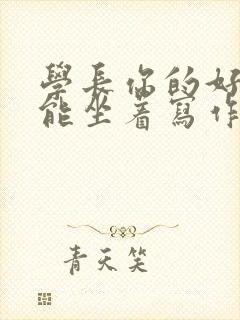 學長你的好
能坐着寫作
青天笑